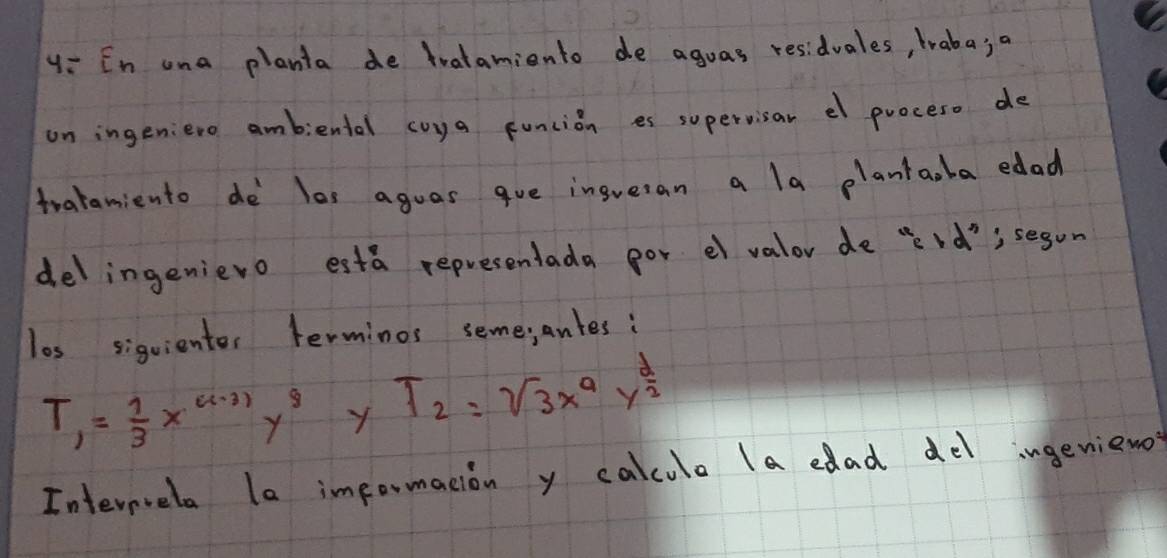 4.- En una planta de tratamiento de aguas residuales, trabaja
un ingeniero ambiental cuya función es supervisar el proceso de
tratamiento de las aguas que ingresan a la planta. La edad
del ingeniero está representada por el valor de "c+d"; segun
los siguientes terminos semejantes:
T₁ = 1/3 x^(c-3) y^8 y T₂ = √3x^9 y^(d/2)
Interpreta la imformación y calcula la edad del ingeniero